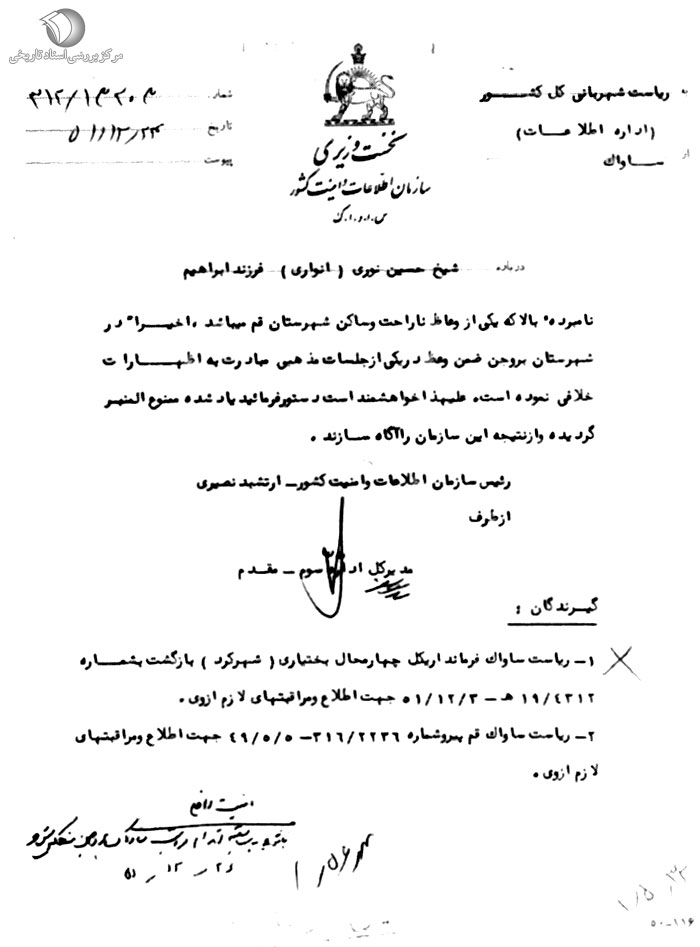 مرکز بررسی اسناد تاریخی
به ریاست شهربانی کل کشــور
(اداره اطلاعات)
از ســاواک
شماره ۳۱۲/۱۳۲۰۳
تاریخ ۵۱/۱۲/۲۴
پیوست
نخست وزیری
سازمان اطلاعات و امنیت کشور
س.ا.و.ا.ک
درباره شیخ حسین نوری (انواری) فرزند ابراهیم
نامبرده بالا که یکی از وعاظ ناراحت وساکن شهرستان قم میباشد ،اخیــراً در
شهرستان بروجن ضمن وعظ دریکی ازجلسات مذهبی مبادرت به اظهارات
خلافی نموده است. علیهذا خواهشمند است دستورفرمائید یاد شده ممنوع المنبر
گردیده وازنتیجه این سازمان راآگاه سـازند .
رئیس سازمان اطلاعات وامنیت کشور– ارتشبد نصیری
ازطرف
مدیرکل اداره سوم – مقدم
گیرندگان :
۱– ریاست ساواک فرمانداریکل چهارمحال بختیاری (شهرکرد) بازگشت بشمـاره
۱۹/۴۳۱۲ هـ – ۵۱/۱۲/۳ جهت اطلاع ومراقبتهای لازم ازوی .
۲– ریاست ساواک قم پیروشماره ۳۱۶/۲۲۳۶– ۴۹/۵/۵ جهت اطلاع ومراقبتهای
لازم ازوی .
۵۱/۱۲/۲۶
۵۰–۱۱۶